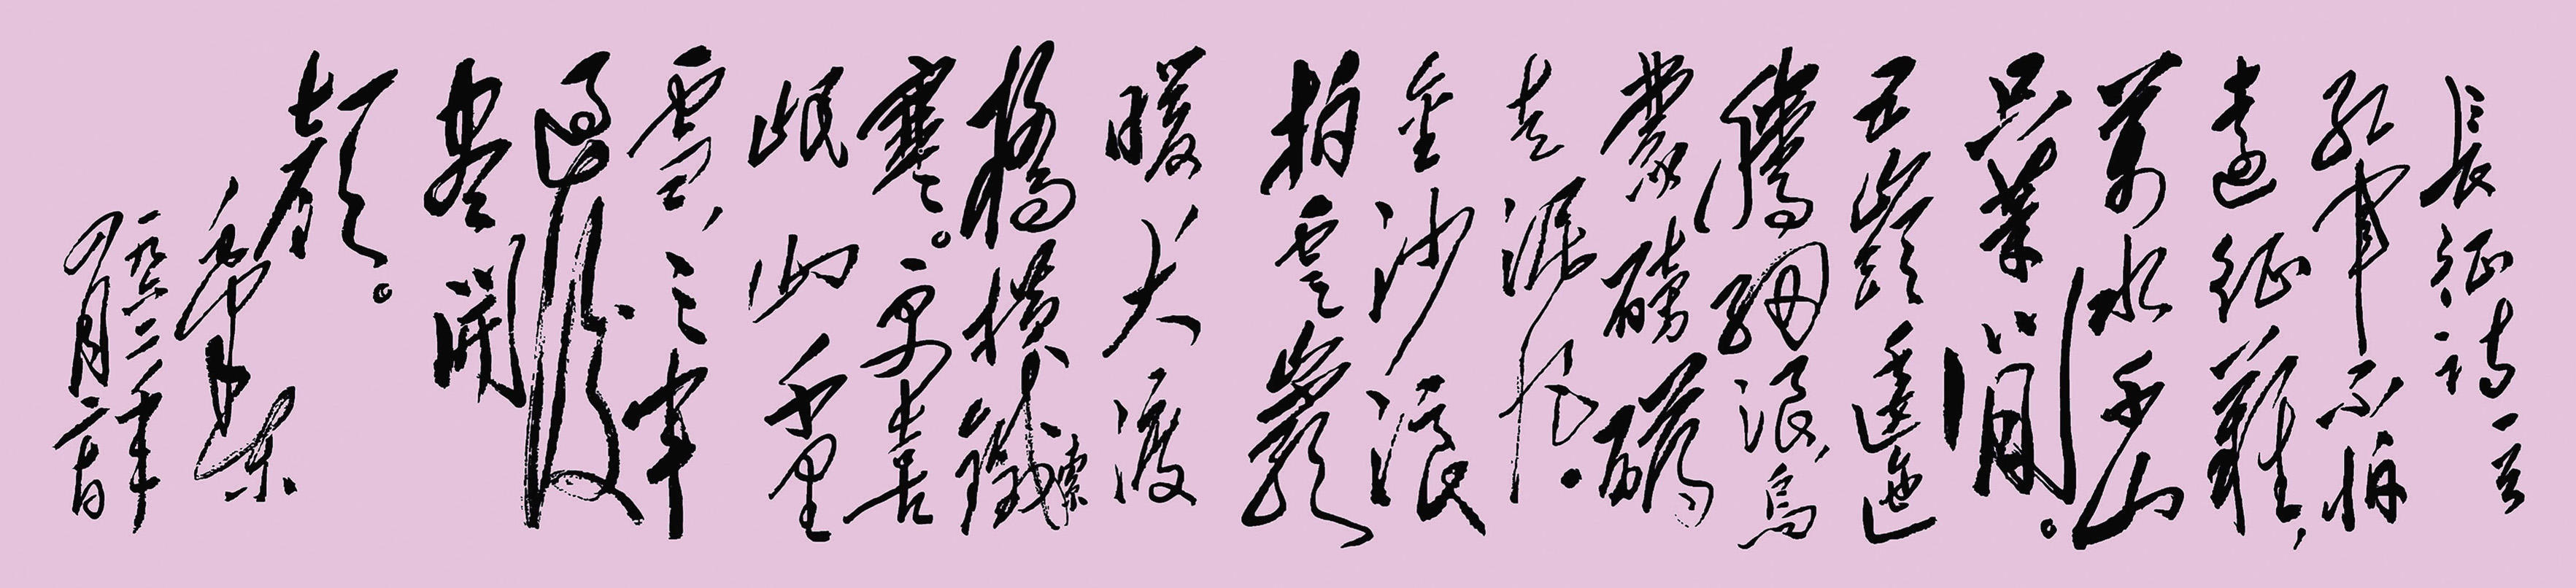 長征詩一首
紅軍不怕
遠征難,
萬水千山
只等閒。
五嶺逶迤
騰細浪,烏
蒙磅礴
走泥丸。
金沙浪
拍雲崖
暖大渡
橋橫鐵索
寒。更喜
岷山千里
雪,三軍
過後
盡開
顏。
毛澤東
一九六二年
四月二十日